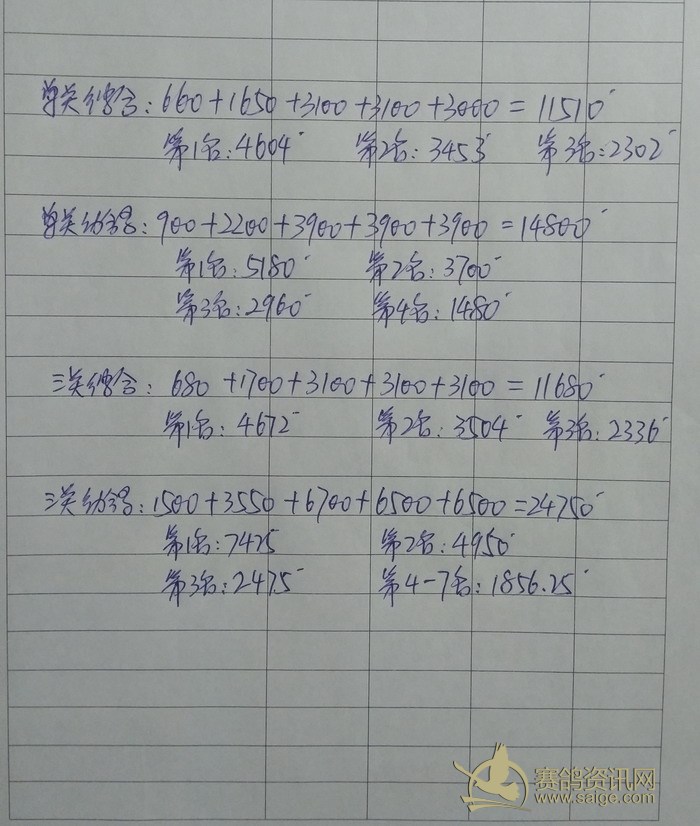 单关综合：660+1650+3100+3100+3000=11510
第1名：4604 第2名：3453 第3名：2302
单关幼鸽：900+2200+3900+3900+3900=14800
第1名：5180 第2名：3700
第3名：2960 第4名：1480
三关综合：680+1700+3100+3100+3100=11680
第1名：4672 第2名：3504 第3名：2336
三关幼鸽：1500+3550+6700+6500+6500=24750
第1名：7425 第2名：4950
第3名：2475 第4-7名：1856.25
赛鸽资讯网
www.saige.com